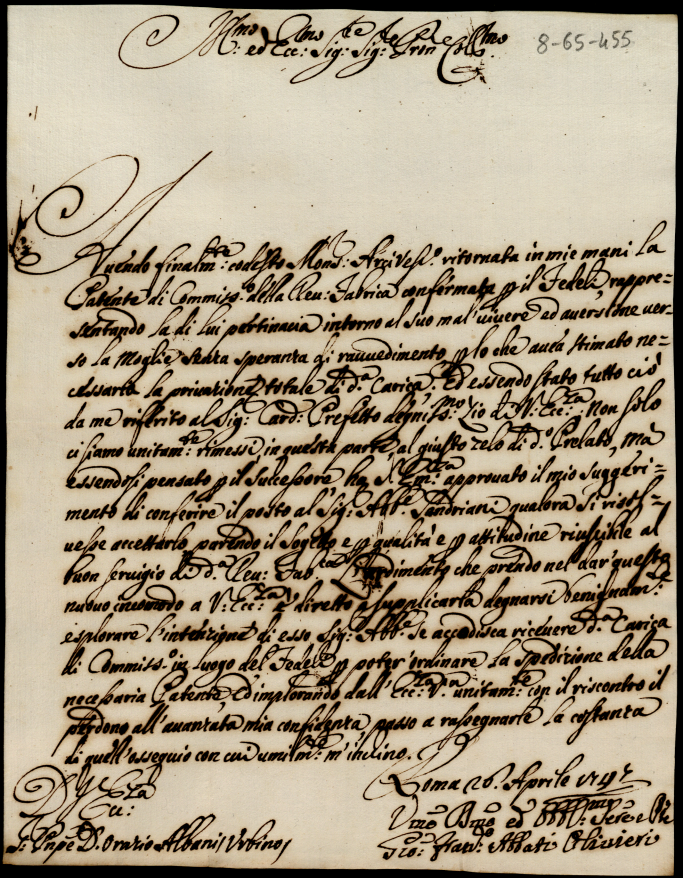 Ill.mo ed Ecc.mo Sig.re Sig.re Pron Coll.mo
8-65-455
Avendo finalm.te codesto Mons. Arcivesc.o ritornata in mie mani la
Patente di Commiss.o della Reu: Fabrica confermata p il Fedeli, rappre=
sentando la di lui pertinacia intorno al suo mal vivere ed aversione ver=
so la Moglie senza speranza di ravvedimento, p lo che avea stimato ne=
cessaria la privazione totale di d.a Carica. Ed essendo stato tutto ciò
da me riferito al Sig.r Card. Prefetto degniss.mo Zio di V. Ecc.za, non solo
ci siamo unitam.te rimessi in questa parte al giusto zelo di d.o Prelato, ma
essendosi pensato p il successore ha S. Em.za approvato il mio suggeri=
mento di conferire il posto al Sig. Abb.e Sandriani qualora si risol=
vesse accettarlo, parendo il sogetto e p qualità e p attitudine riuscibile al
buon servigio di d.a Reu: Fab.ca L'ardimento che prendo nel dar questo
nuovo incomodo a V. Ecc.za è diretto a supplicarla degnarsi benignam.te
esplorare l'intenzione di esso Sig. Abb.e se accudisca ricevere d.a Carica
di Commiss.o in luogo del Fedeli p poter ordinare la spedizione della
necessaria Patente, ed implorando dall' Ecc.za V. unitam.te con il riscontro il
perdono all'avanzata mia confidenza, passo a rassegnarle la costanza
di quell'ossequio con cui umilm.te m'inchino.
D V Ecc.za
Roma 26. Aprile 1747
Umo Dmo ed Obbl: Serv.e
S: Pnpe D. Orazio Albani, Urbino
Gio: Fran.co Abbati Olivieri